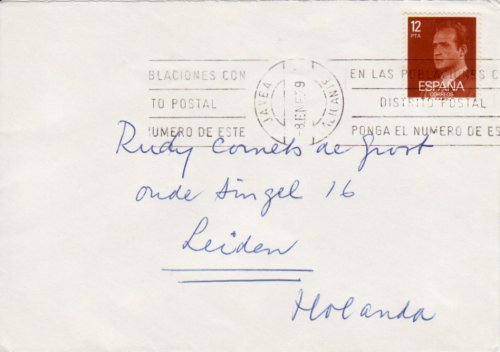 12
PTA
ESPAÑA
CORREOS
BLACIONES CON
TO POSTAL
NUMERO DE ESTE
JAVEA
8 ENE 79
ALICANTE
EN LAS POBLACIONES C
DISTRITO POSTAL
PONGA EL NUMERO DE ES
Rudy Cornets de Groot
oude Singel 16
Leiden
Holanda